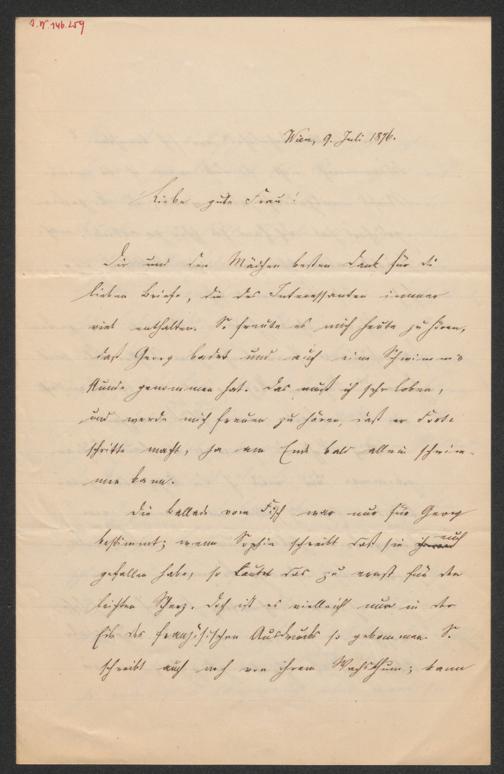 I. N. 146.259
Wien, 9. Juli 1876.
Liebe gute Frau!
Dir und den Mädchen besten Dank für die
lieben Briefe, die des Interessanten immer
viel enthalten. So freute es mich heute zu hören,
daß Georg badet und auch eine Schwimm-
stunde genommen hat. Das muß ich sehr loben,
und werde mich freuen zu hören, daß er Fort-
schritte macht, ja am Ende bald allein schwim-
men kann.
Die Ballade vom Fisch war nur für Georg
bestimmt; wenn Sophie schreibt daß sie auch
gefallen habe, so lautet das zu ernst für den
leichten Scherz. Doch ist es vielleicht nur in der
Eile des französischen Ausdrucks so gekommen. S.
schreibt auch noch von ihrem Wachsthum; kann